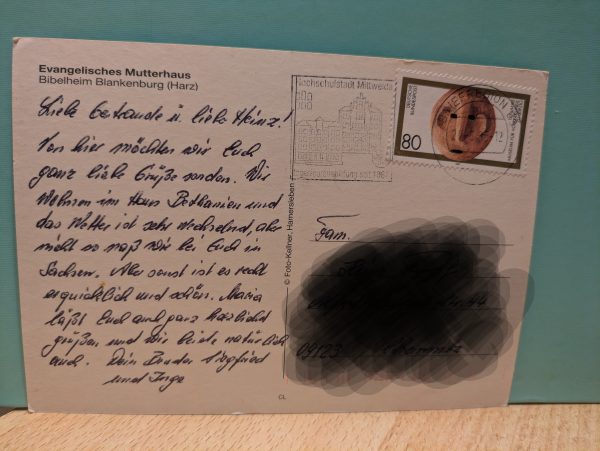 Evangelisches Mutterhaus
Bibelheim Blankenburg (Harz)
Liebe Gertraude u. lieber Heinz!
Von hier möchten wir Euch
ganz liebe Grüße senden. Wir
wohnen im Haus Bethanien und
das Wetter ist sehr wechselnd, aber
nicht so naß wie bei Euch in
Sachsen. Aber sonst ist es recht
erquicklich und schön. Maria
läßt Euch auch ganz herzlich
grüßen und wir beide natürlich
auch. Dein Bruder Siegfried
und Inge
© Foto-Kellner, Hamersleben
CL
Hochschulstadt Mittweida
Ingenieurausbildung seit 1867
DEUTSCHE
BUNDESPOST
80
Fam.